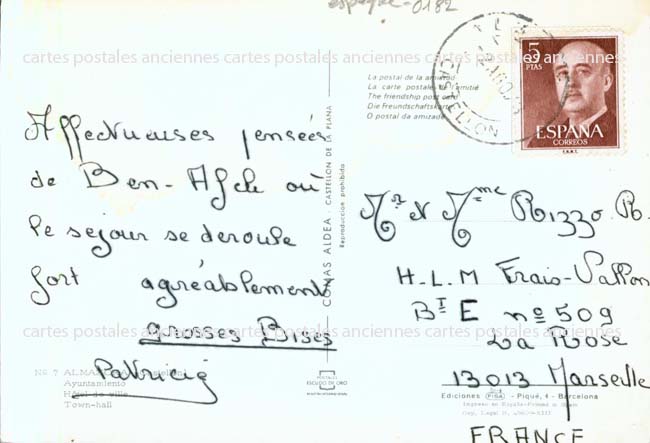 espagne - 0182
cartes postales anciennes cartes postales anciennes cartes postales anciennes
La postal de la amistad
La carte postale de l'amitié
The friendship post card
Die Freundschaftskarte
O postal da amizade
CASTELLON
5
PTAS
ESPAÑA
CORREOS
F.N.M.T.
Affectueuses pensées
de Ben-
où
le sejour se deroule
fort agréablement
Grosses Bises
Patricia
COMAS ALDEA - CASTELLON DE LA PLANA
Reproduccion prohibida
Mr N Mme Rizzo. R.
H-L-M Frais-Vallon
BT E nº 509
La Rose
13013 Marseille
FRANCE
cartes postales anciennes cartes postales anciennes cartes postales anciennes
No 7
Ayuntamiento
Hôtel de ville
Town-hall
POSTALES
ESCUDO DE ORO
Ediciones FISA - Piqué, 4 - Barcelona